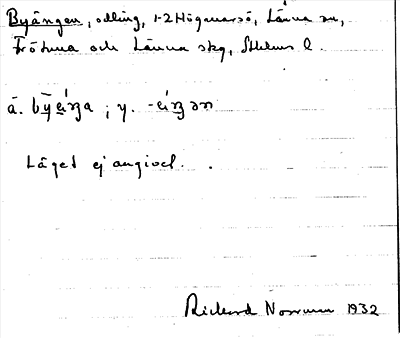 Byängen, odling, 1-2 Högmarsö, Länna sn,
Frötuna och Länna skg, Sthlms l.
ä. bȳeiŋa ; y. -eiŋən
Läget ej angivet.
Rickard 1932